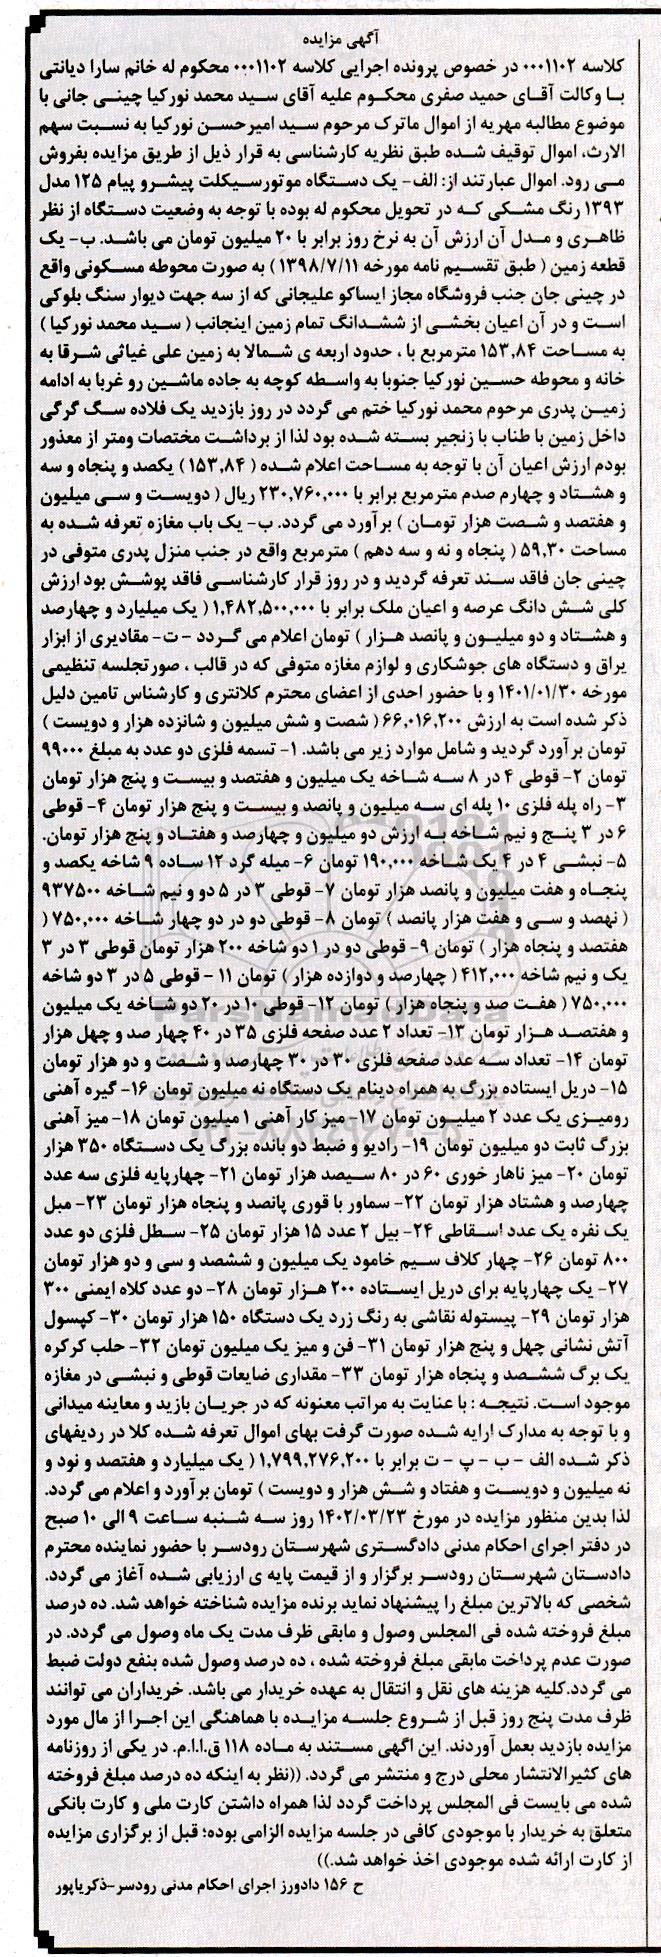 آگهی مزایده
کلاسه ۰۰۰۱۱۰۲ در خصوص پرونده اجرایی کلاسه ۰۰۰۱۱۰۲ محکوم له خانم سارا دیانتی
با وکالت آقای حمید صفری محکوم علیه آقای سید محمد نورکیا چینی جانی با
موضوع مطالبه مهریه از اموال ماترک مرحوم سید امیرحسن نورکیا به نسبت سهم
الارث، اموال توقیف شده طبق نظریه کارشناسی به قرار ذیل از طریق مزایده بفروش
می رود. اموال عبارتند از: الف- یک دستگاه موتورسیکلت پیشرو پیام ۱۲۵ مدل
۱۳۹۳ رنگ مشکی که در تحویل محکوم له بوده با توجه به وضعیت دستگاه از نظر
ظاهری و مدل آن ارزش آن به نرخ روز برابر با ۲۰ میلیون تومان می باشد. ب- یک
قطعه زمین ( طبق تقسیم نامه مورخه ۱۳۹۸/۷/۱۱ ) به صورت محوطه مسکونی واقع
در چینی جان جنب فروشگاه مجاز ایساکو علیجانی که از سه جهت دیوار سنگ بلوکی
است و در آن اعیان بخشی از ششدانگ تمام زمین اینجانب ( سید محمد نورکیا )
به مساحت ۱۵۳,۸۴ مترمربع با ، حدود اربعه ی شمالا به زمین علی غیاثی شرقا به
خانه و محوطه حسین نورکیا جنوبا به واسطه کوچه به جاده ماشین رو غربا به ادامه
زمین پدری مرحوم محمد نورکیا ختم می گردد در روز بازدید یک فلاده سگ گرگی
داخل زمین با طناب با زنجیر بسته شده بود لذا از برداشت مختصات ومتر از معذور
بودم ارزش اعیان آن با توجه به مساحت اعلام شده ( ۱۵۳,۸۴ ) یکصد و پنجاه و سه
و هشتاد و چهارم صدم مترمربع برابر با ۲۳۰,۷۶۰,۰۰۰ ریال ( دویست و سی میلیون
و هفتصد و شصت هزار تومان ) برآورد می گردد. پ- یک باب مغازه تعرفه شده به
مساحت ۵۹,۳۰ ( پنجاه و نه و سه دهم ) مترمربع واقع در جنب منزل پدری متوفی در
چینی جان فاقد سند تعرفه گردید و در روز قرار کارشناسی فاقد پوشش بود ارزش
کلی شش دانگ عرصه و اعیان ملک برابر با ۱,۴۸۲,۵۰۰,۰۰۰ ( یک میلیارد و چهارصد
و هشتاد و دو میلیون و پانصد هزار ) تومان اعلام می گردد -ت- مقادیری از ابزار
یراق و دستگاه های جوشکاری و لوازم مغازه متوفی که در قالب ، صورتجلسه تنظیمی
مورخه ۱۴۰۱/۰۱/۳۰ و با حضور احدی از اعضای محترم کلانتری و کارشناس تامین دلیل
ذکر شده است به ارزش ۶۶,۰۱۶,۲۰۰ ( شصت و شش میلیون و شانزده هزار و دویست )
تومان برآورد گردید و شامل موارد زیر می باشد. ۱- تسمه فلزی دو عدد به مبلغ ۹۹۰۰۰
تومان ۲- قوطی ۴ در ۸ سه شاخه یک میلیون و هفتصد و بیست و پنج هزار تومان
۳- راه پله فلزی ۱۰ پله ای سه میلیون و پانصد و بیست و پنج هزار تومان ۴- قوطی
۶ در ۳ پنج و نیم شاخه به ارزش دو میلیون و چهارصد و هفتاد و پنج هزار تومان.
۵- نبشی ۴ در ۴ یک شاخه ۱۹۰,۰۰۰ تومان ۶- میله گرد ۱۲ ساده ۹ شاخه یکصد و
پنجاه و هفت میلیون و پانصد هزار تومان ۷- قوطی ۳ در ۵ دو و نیم شاخه ۹۳۷۵۰۰
( نهصد و سی و هفت هزار پانصد ) تومان ۸- قوطی دو در دو چهار شاخه ۷۵۰,۰۰۰ (
هفتصد و پنجاه هزار ) تومان ۹- قوطی دو در ۱ دو شاخه ۲۰۰ هزار تومان قوطی ۳ در ۳
یک و نیم شاخه ۴۱۲,۰۰۰ ( چهارصد و دوازده هزار ) تومان ۱۱ - قوطی ۵ در ۳ دو شاخه
۷۵۰,۰۰۰ ( هفت صد و پنجاه هزار ) تومان ۱۲- قوطی ۱۰ در ۲۰ دو شاخه یک میلیون
و هفتصد هزار تومان ۱۳- تعداد ۲ عدد صفحه فلزی ۳۵ در ۴۰ چهار صد و چهل هزار
تومان ۱۴- تعداد سه عدد صفحه فلزی ۳۰ در ۳۰ چهارصد و شصت و دو هزار تومان
۱۵- دریل ایستاده بزرگ به همراه دینام یک دستگاه نه میلیون تومان ۱۶- گیره آهنی
رومیزی یک عدد ۲ میلیون تومان ۱۷- میز کار آهنی ۱ میلیون تومان ۱۸- میز آهنی
بزرگ ثابت دو میلیون تومان ۱۹- رادیو و ضبط دو بانده بزرگ یک دستگاه ۳۵۰ هزار
تومان ۲۰- میز ناهار خوری ۶۰ در ۸۰ سیصد هزار تومان ۲۱- چهارپایه فلزی سه عدد
چهارصد و هشتاد هزار تومان ۲۲- سماور با قوری پانصد و پنجاه هزار تومان ۲۳- مبل
یک نفره یک عدد اسقاطی ۲۴- بیل ۲ عدد ۱۵ هزار تومان ۲۵- سطل فلزی دو عدد
۸۰۰ تومان ۲۶- چهار کلاف سیم خامود یک میلیون و ششصد و سی و دو هزار تومان
۲۷- یک چهارپایه برای دریل ایستاده ۲۰۰ هزار تومان ۲۸- دو عدد کلاه ایمنی ۳۰۰
هزار تومان ۲۹- پیستوله نقاشی به رنگ زرد یک دستگاه ۱۵۰ هزار تومان ۳۰- کپسول
آتش نشانی چهل و پنج هزار تومان ۳۱- فن و میز یک میلیون تومان ۳۲- حلب کرکره
یک برگ ششصد و پنجاه هزار تومان ۳۳- مقداری ضایعات قوطی و نبشی در مغازه
موجود است. نتیجه : با عنایت به مراتب معنونه که در جریان بازید و معاینه میدانی
و با توجه به مدارک ارایه شده صورت گرفت بهای اموال تعرفه شده کلا در ردیفهای
ذکر شده الف - ب - پ - ت برابر با ۱,۷۹۹,۲۷۶,۲۰۰ ( یک میلیارد و هفتصد و نود و
نه میلیون و دویست و هفتاد و شش هزار و دویست ) تومان برآورد و اعلام می گردد.
لذا بدین منظور مزایده در مورخ ۱۴۰۲/۰۳/۲۳ روز سه شنبه ساعت ۹ الی ۱۰ صبح
در دفتر اجرای احکام مدنی دادگستری شهرستان رودسر با حضور نماینده محترم
دادستان شهرستان رودسر برگزار و از قیمت پایه ی ارزیابی شده آغاز می گردد.
شخصی که بالاترین مبلغ را پیشنهاد نماید برنده مزایده شناخته خواهد شد. ده درصد
مبلغ فروخته شده فی المجلس وصول و مابقی ظرف مدت یک ماه وصول می گردد. در
صورت عدم پرداخت مابقی مبلغ فروخته شده ، ده درصد وصول شده بنفع دولت ضبط
می گردد.کلیه هزینه های نقل و انتقال به عهده خریدار می باشد. خریداران می توانند
ظرف مدت پنج روز قبل از شروع جلسه مزایده با هماهنگی این اجرا از مال مورد
مزایده بازدید بعمل آوردند. این اگهی مستند به ماده ۱۱۸ ق.ا.ا.م. در یکی از روزنامه
های کثیرالانتشار محلی درج و منتشر می گردد. ((نظر به اینکه ده درصد مبلغ فروخته
شده می بایست فی المجلس پرداخت گردد لذا همراه داشتن کارت ملی و کارت بانکی
متعلق به خریدار با موجودی کافی در جلسه مزایده الزامی بوده؛ قبل از برگزاری مزایده
از کارت ارائه شده موجودی اخذ خواهد شد.))
ح ۱۵۶ دادورز اجرای احکام مدنی رودسر-ذکریاپور
ParsNamadData